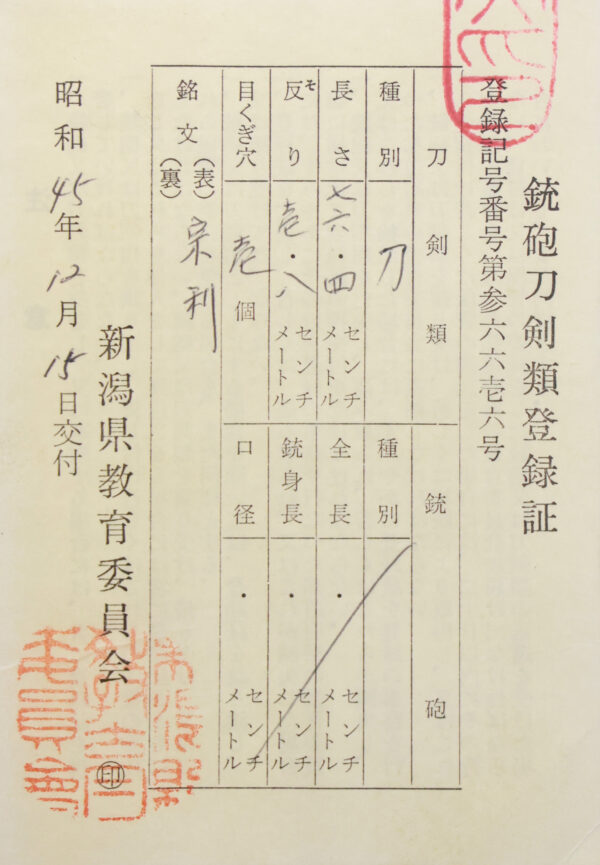 銃砲刀剣類登録証
登録記号番号第参六六壱六号
刀剣類
種別 刀
長さ 七六・四 センチメートル
反り 壱・八 センチメートル
そ
目くぎ穴 壱個
銘文 (表) 宗利
(裏)
銃砲
種別
全長 ・ センチメートル
銃身長 ・ センチメートル
口径 ・ センチメートル
昭和45年12月15日交付
新潟県教育委員会 印